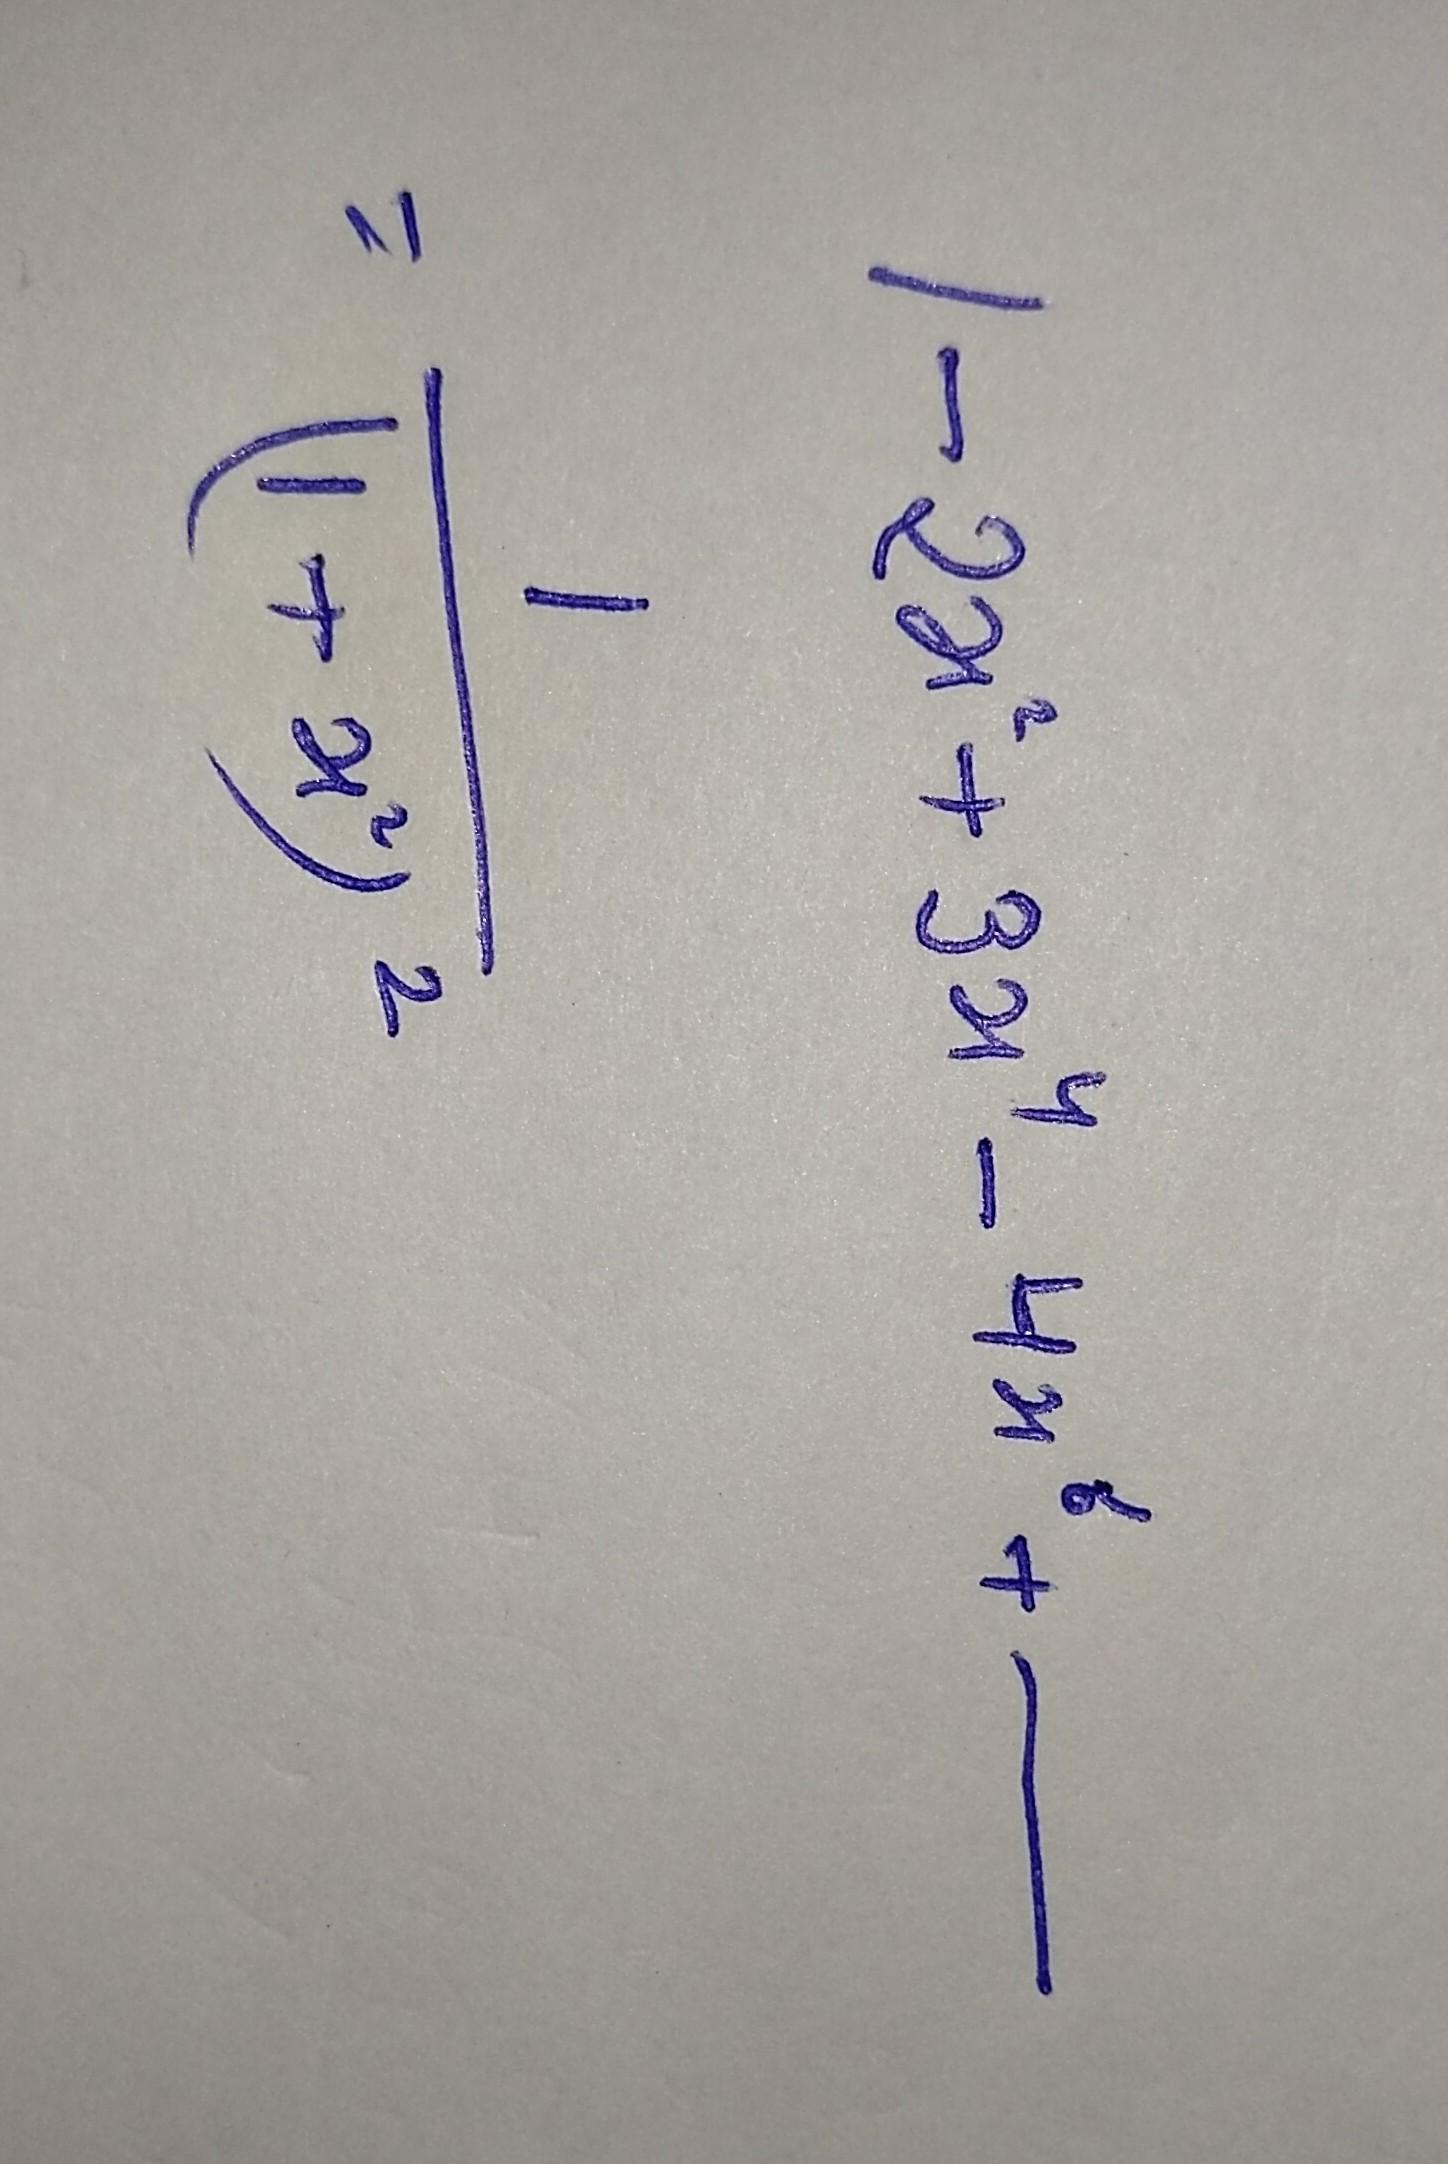 1 - 2x² + 3x⁴ - 4x⁶ + —
= 1/(1 + x²)²